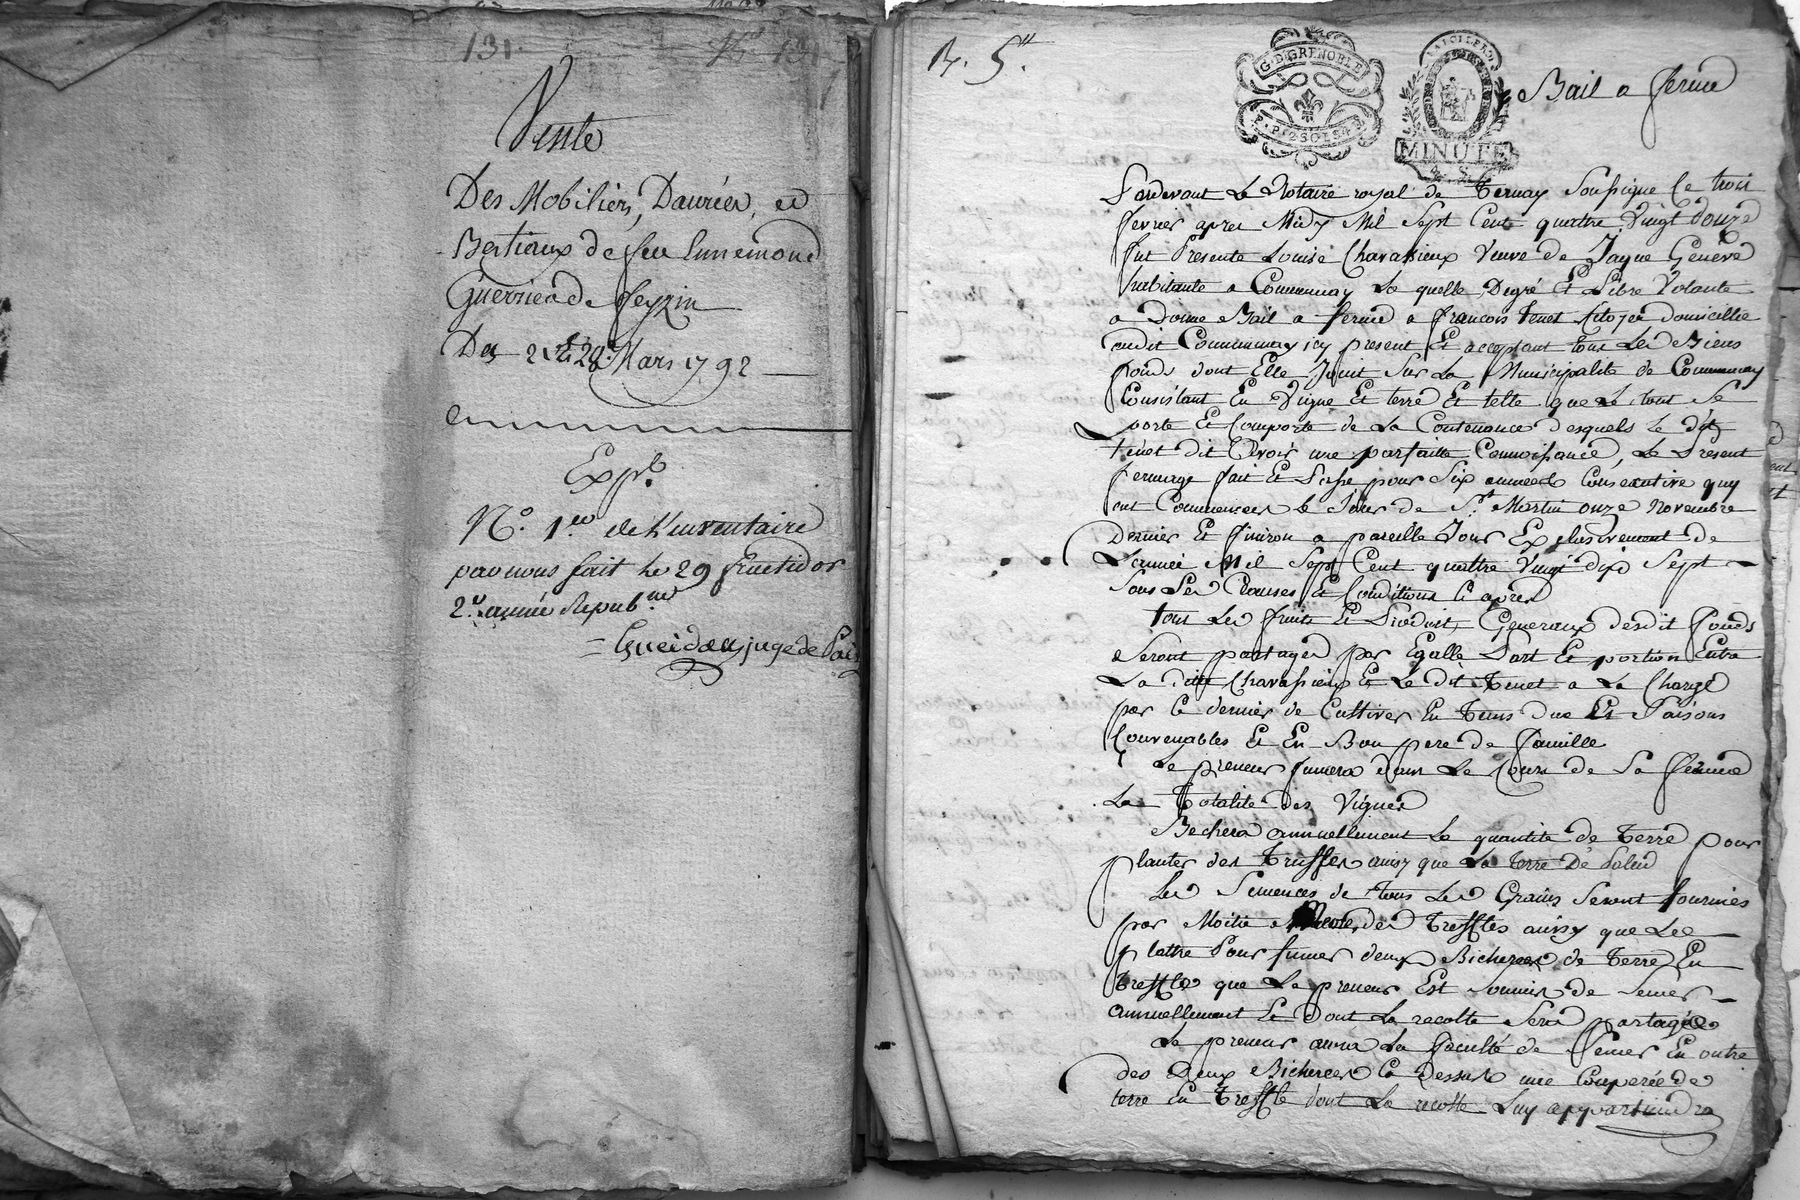 131.
Vente
Des Mobiliers, Danrées, et
Bestiaux de feu Ennemond
Guerrier de feyzin
Des 2 et 28 Mars 1792
Exp.
N.° 1.er de L'inventaire
par nous fait le 29 fructidor
2.e année Repub.ne
= Gueidan juge de Paix
5.
G. D. GRENOBLE
P. P. 2 SOLS 4 D
LA LOI LE ROI
MINUTE
Bail a ferme
Pardevant Le Notaire royal de Ternay Soussigne Le trois
fevrier apres Midy Mil Sept Cent quattre Vingt douze
fut Presente Louise Chavassieux Veuve de Jaque Geneve
habitante a Communay La quelle Degré Et Libre Volonte
a donne Bail a ferme a francois tenet Citoyen domicillie
audit Communay icy present Et acceptant tous Les Biens
fonds dont Elle Jouit Sur La Municipalite de Communay
Consistant En Vigne Et terre Et telle que Le tout Se
porte Et Comporte de La Contenance desquels Le dit
tenet dit avoir une parfaitte Connoissance, Le Present
fermage fait Et Passe pour Six annees Consecutive quy
ont Commencees Le Jour de St Martin onze Novembre
Dernier Et finiron a pareille Jour Exclusivement de
L'année Mil Sept Cent quattre Vingt dix Sept
Sous Les Clauses Et Conditions Cy apres
tous Les fruits Et Produits Generaux desdit fonds
Seront partages par Egalle Part Et portion Entre
La ditte Chavassieux Et Le dit tenet a La Charge
par Ce dernier de Cultiver En tems due Et Saisons
Convenables Et En Bon pere de famille
Le preneur fumera dans Le Cours de Sa ferme
La Totalite des Vignes
Bechera annuellement La quantite de Terre pour
planter des Truffes ainsy que La terre De
Les Semences de tous Les Grains Seront fournies
par Moitie des Treffles ainsy que Le
plattre Pour fumer deux Bicherees de Terre En
Treffle que Le preneur Est Soumis de Semer
annuellement Et dont La recolte Sera partagée
Le preneur aura La faculté de Semer En outre
des deux Bicherees Cy dessus une Couperée de
terre En Treffle dont La recolte Luy appartiendra